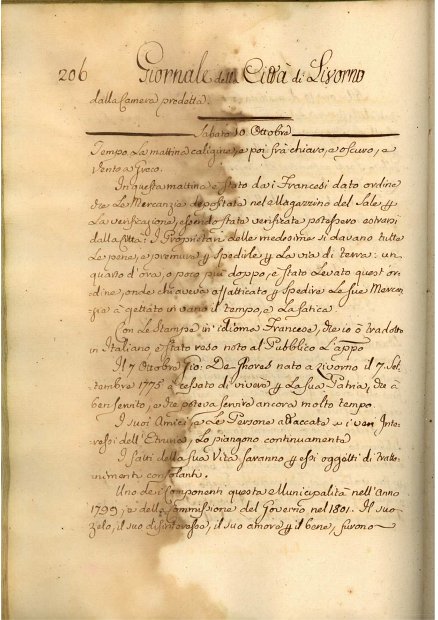 206 Giornale della Città di Livorno
dalla Camera predetta.
Sabato 10 Ottobre
Tempo. La mattina caligine, e poi frà chiaro, e oscuro, e
Vento a Greco.
In questa mattina è stato da i Francesi dato ordine
che Le Mercanzie depositate nel Magazzino del Sale, p
La verificazione, essendo state verificate potessero estrarsi
dalla Città: I Proprietari delle medesime si davano tutte
Le pene, e premure p spedirle p La via di terra: un
quarto d'ora, o poco più doppo, è stato Levato quest'or-
dine, onde chi aveva affatticato p spedire Le sue Mercan-
zie à gettato in vano il tempo, e La fatica.
Con Le Stampe in idioma Francese, che io ò tradotto
in Italiano è stato reso noto al Pubblico L'appo
Il 7 Ottobre Gio: De-Shores nato a Livorno il 7. Set-
tembre 1775 è cessato di vivere p La sua Patria, che à
ben servito, e che poteva servire ancora molto tempo.
I suoi Amici, e Le Persone attaccate a i veri Inte-
ressi dell'Etruria Lo piangono continuamente
I fatti della sua Vita saranno p essi oggetti di tratte-
nimenti consolanti.
Uno de i Componenti questa Municipalità nell'Anno
1799, e della Commissione del Governo nel 1801. Il suo
zelo, il suo disinteresse, il suo amore p il bene, furono